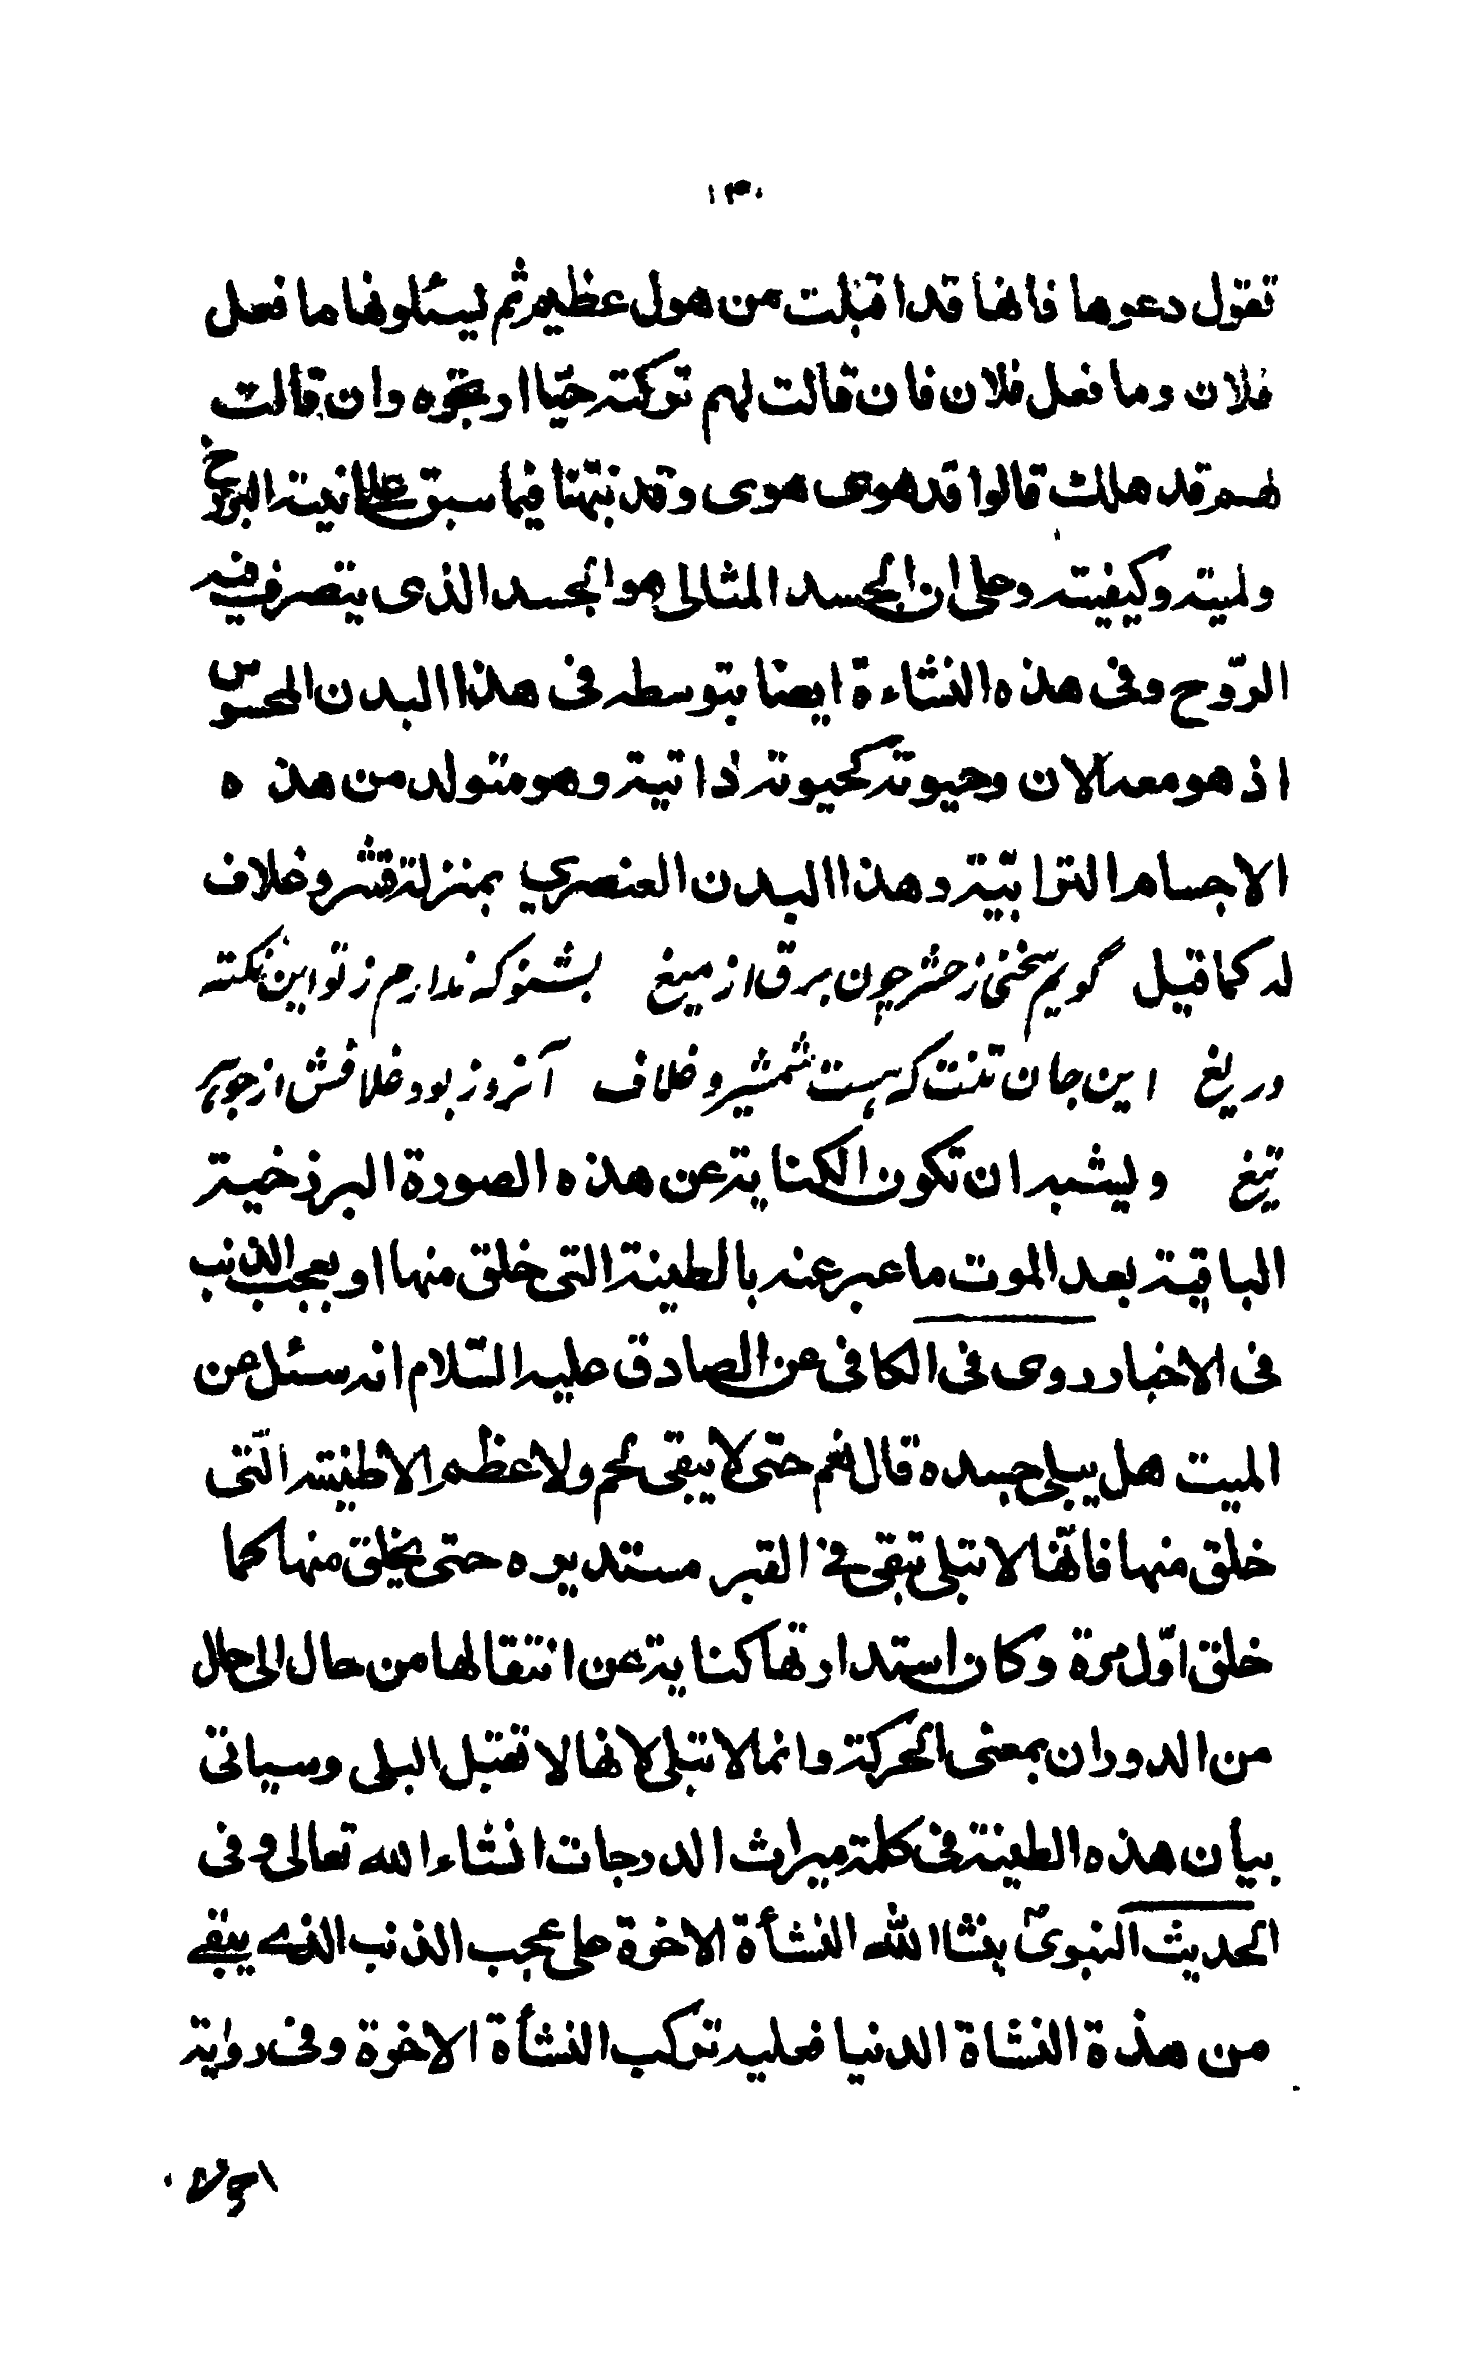 ١٣٠
تقول دعوها فانها قد اقبلت من هول عظيم ثم يسئلونها ما فعل
فلان وما فعل فلان فان قالت لهم تركته حيّا ارتجوه وان قالت
لهم قد هلك قالوا قد هوى هوى وقد نبّهنا فيما سبق على انية البرزخ
ولميته وكيفيته وعلى ان الجسد المثالى هو الجسد الذى يتصرف فيه
الرّوح وفى هذه النشاءة ايضا بتوسطه فى هذا البدن المحسوس
اذ هو معه الان وحيوته كحيوته ذاتية وهو متولد من هذه
الاجسام الترابيّة وهذا البدن العنصري بمنزلة قشر وغلاف
له كما قيل گويم سخنى ز حشر چون برق از ميغ بشنو كه ندارم ز تو اين نكته
دريغ اين جان تنت كه هست شمشير و غلاف آنروز بود غلافش از جوهر
تيغ ويشبه ان تكون الكناية عن هذه الصورة البرزخية
الباقية بعد الموت ما عبر عنه بالطينة التى خلق منها او بعجب الذنب
فى الاخبار روى فى الكافى عن الصادق عليه السّلام انه سئل عن
الميت هل يبلى جسده قال نعم حتى لا يبقى لحم ولا عظم الا طينته الّتى
خلق منها فانّها لا تبلى تبقى فى القبر مستديره حتى يخلق منها كما
خلق اوّل مرة وكان استدارتها كناية عن انتقالها من حال الى حال
من الدوران بمعنى الحركة وانما لا تبلى لانها لا تقبل البلى وسياتى
بيان هذه الطينة فى كلمة ميراث الدرجات انشاء الله تعالى وفى
الحديث النبوىّ ينشا الله النشأة الاخرة على عجب الذنب الذى يبقى
من هذة النشاة الدنيا فعليه تركب النشأة الاخرة وفى رواية